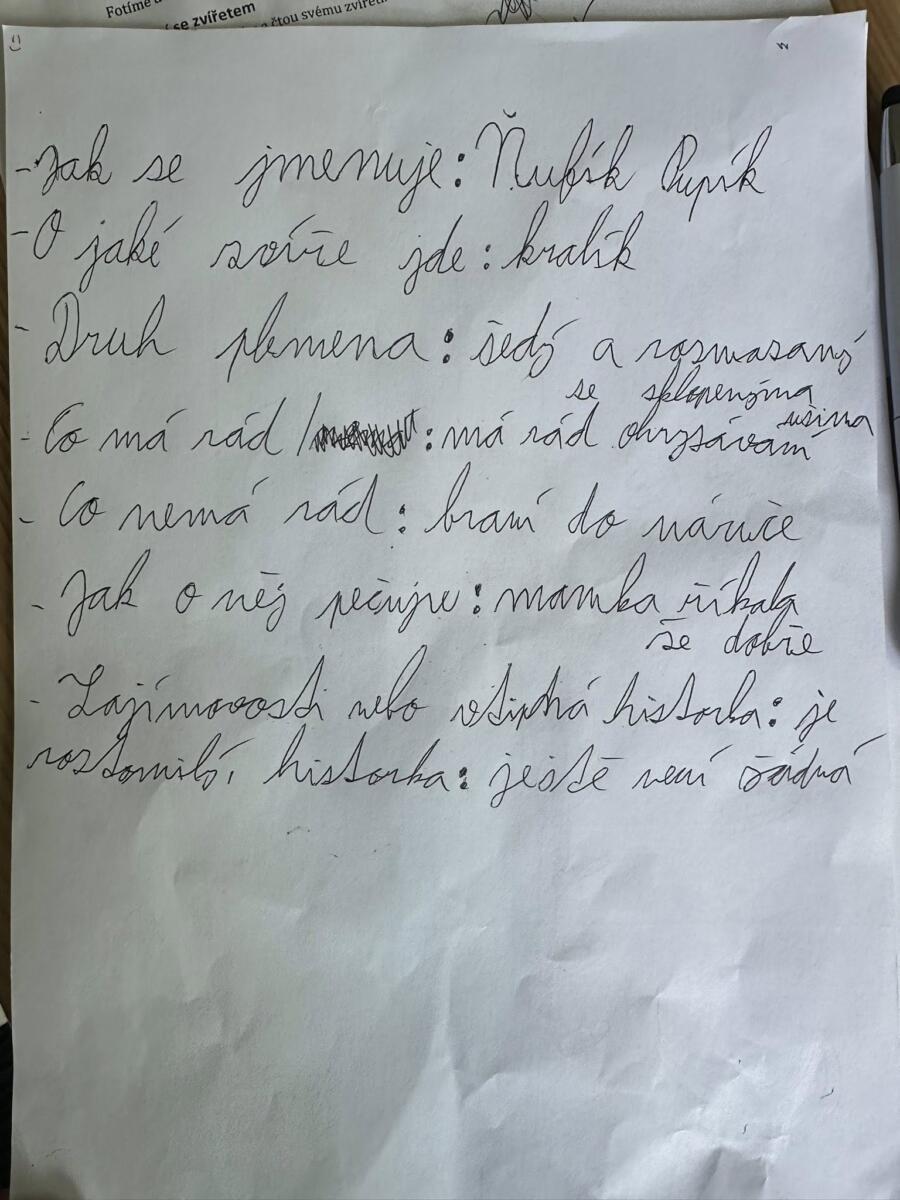 Fotíme
se zvířetem
čtou svému zvíř
- Jak se jmenuje: Ňufík Pupík
- O jaké zvíře jde: kralík
- Druh plemena: šedý a rozmazaný
se sklopenýma
ušima
- Co má rád / : má rád ohryzávaní
- Co nemá rád: braní do náruče
- Jak o něj pečuje: mamka říkala
že dobře
- Zajímavosti nebo vtipná historka: je
roztomilý, historka: ještě není žádná